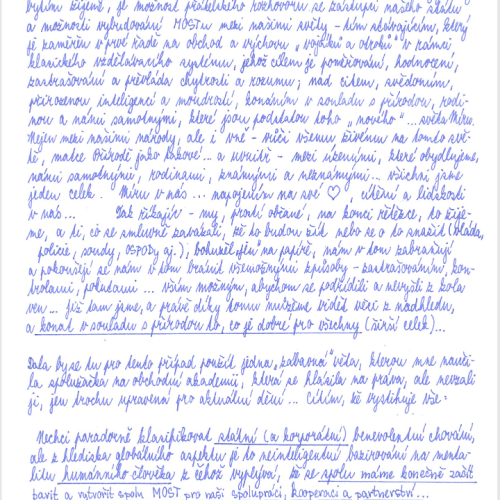 bytím zřízeně, je možnost přátelského rozhovoru se zástupci našeho státu
a možnosti vybudování MOSTu mezi našimi světy – tím stávajícím, který
je zaměřen v prvé řadě na obchod a výchovu "vojáků" a otroků v rámci
klasického vzdělávacího systému, jehož cílem je poměřování, hodnocení,
zastrašování a převláda chytrosti a rozumu; nad citem, svědomím,
přirozenou inteligencí a moudrostí, konáním v souladu s přírodou, rodi-
nou a námi samotnými, které jsou podstatou toho "nového"... světa Míru.
Nejen mezi našimi národy, ale i vně – vůči všemu živému na tomto svě-
tě, matce Přírodě jako takové... a uvnitř – mezi územími, které obydlujeme,
námi samotnými, rodinami, známými a neznámými... všichni jsme
jeden celek. Míru v nás... napojením na své ♡, cítění a lidskosti
v nás... Jak říkají – my, prostí občané, na konci řetězce, to žije-
me, a ti, co se smluvně zavázali, že to budou žít nebo se o to snažit (vláda,
policie, soudy, OSPODy aj.), bohužel "jen" na papíře, nám v tom zabraňují
a pokoušejí se nám v tom bránit všemožnými způsoby – zastrašováním, kon-
trolami, pokutami... vším možným, abychom se podřídili a nevyšli z kola
ven... Již tam jsme, a právě díky tomu můžeme vidět věci z nadhledu,
a konat v souladu s přírodou to, co je dobré pro všechny (širší celek)...
Dala by se tu pro tento případ použít jedna "zábavná" věta, kterou mne nauči-
la spolužačka na obchodní akademii, která se hlásila na práva, ale nevzali
ji, jen trochu upravená pro aktuální dění... cítím, že vystihuje vše:
Nechci paradoxně klasifikovat státní (a korporátní) benevolentní chování,
ale z hlediska globálního aspektu je to neinteligentní bazírování na menta-
litu humánního člověka z čehož vyplývá, že se spolu máme konečně začít
bavit a vytvořit spolu MOST pro naši spolupráci, kooperaci a partnerství...